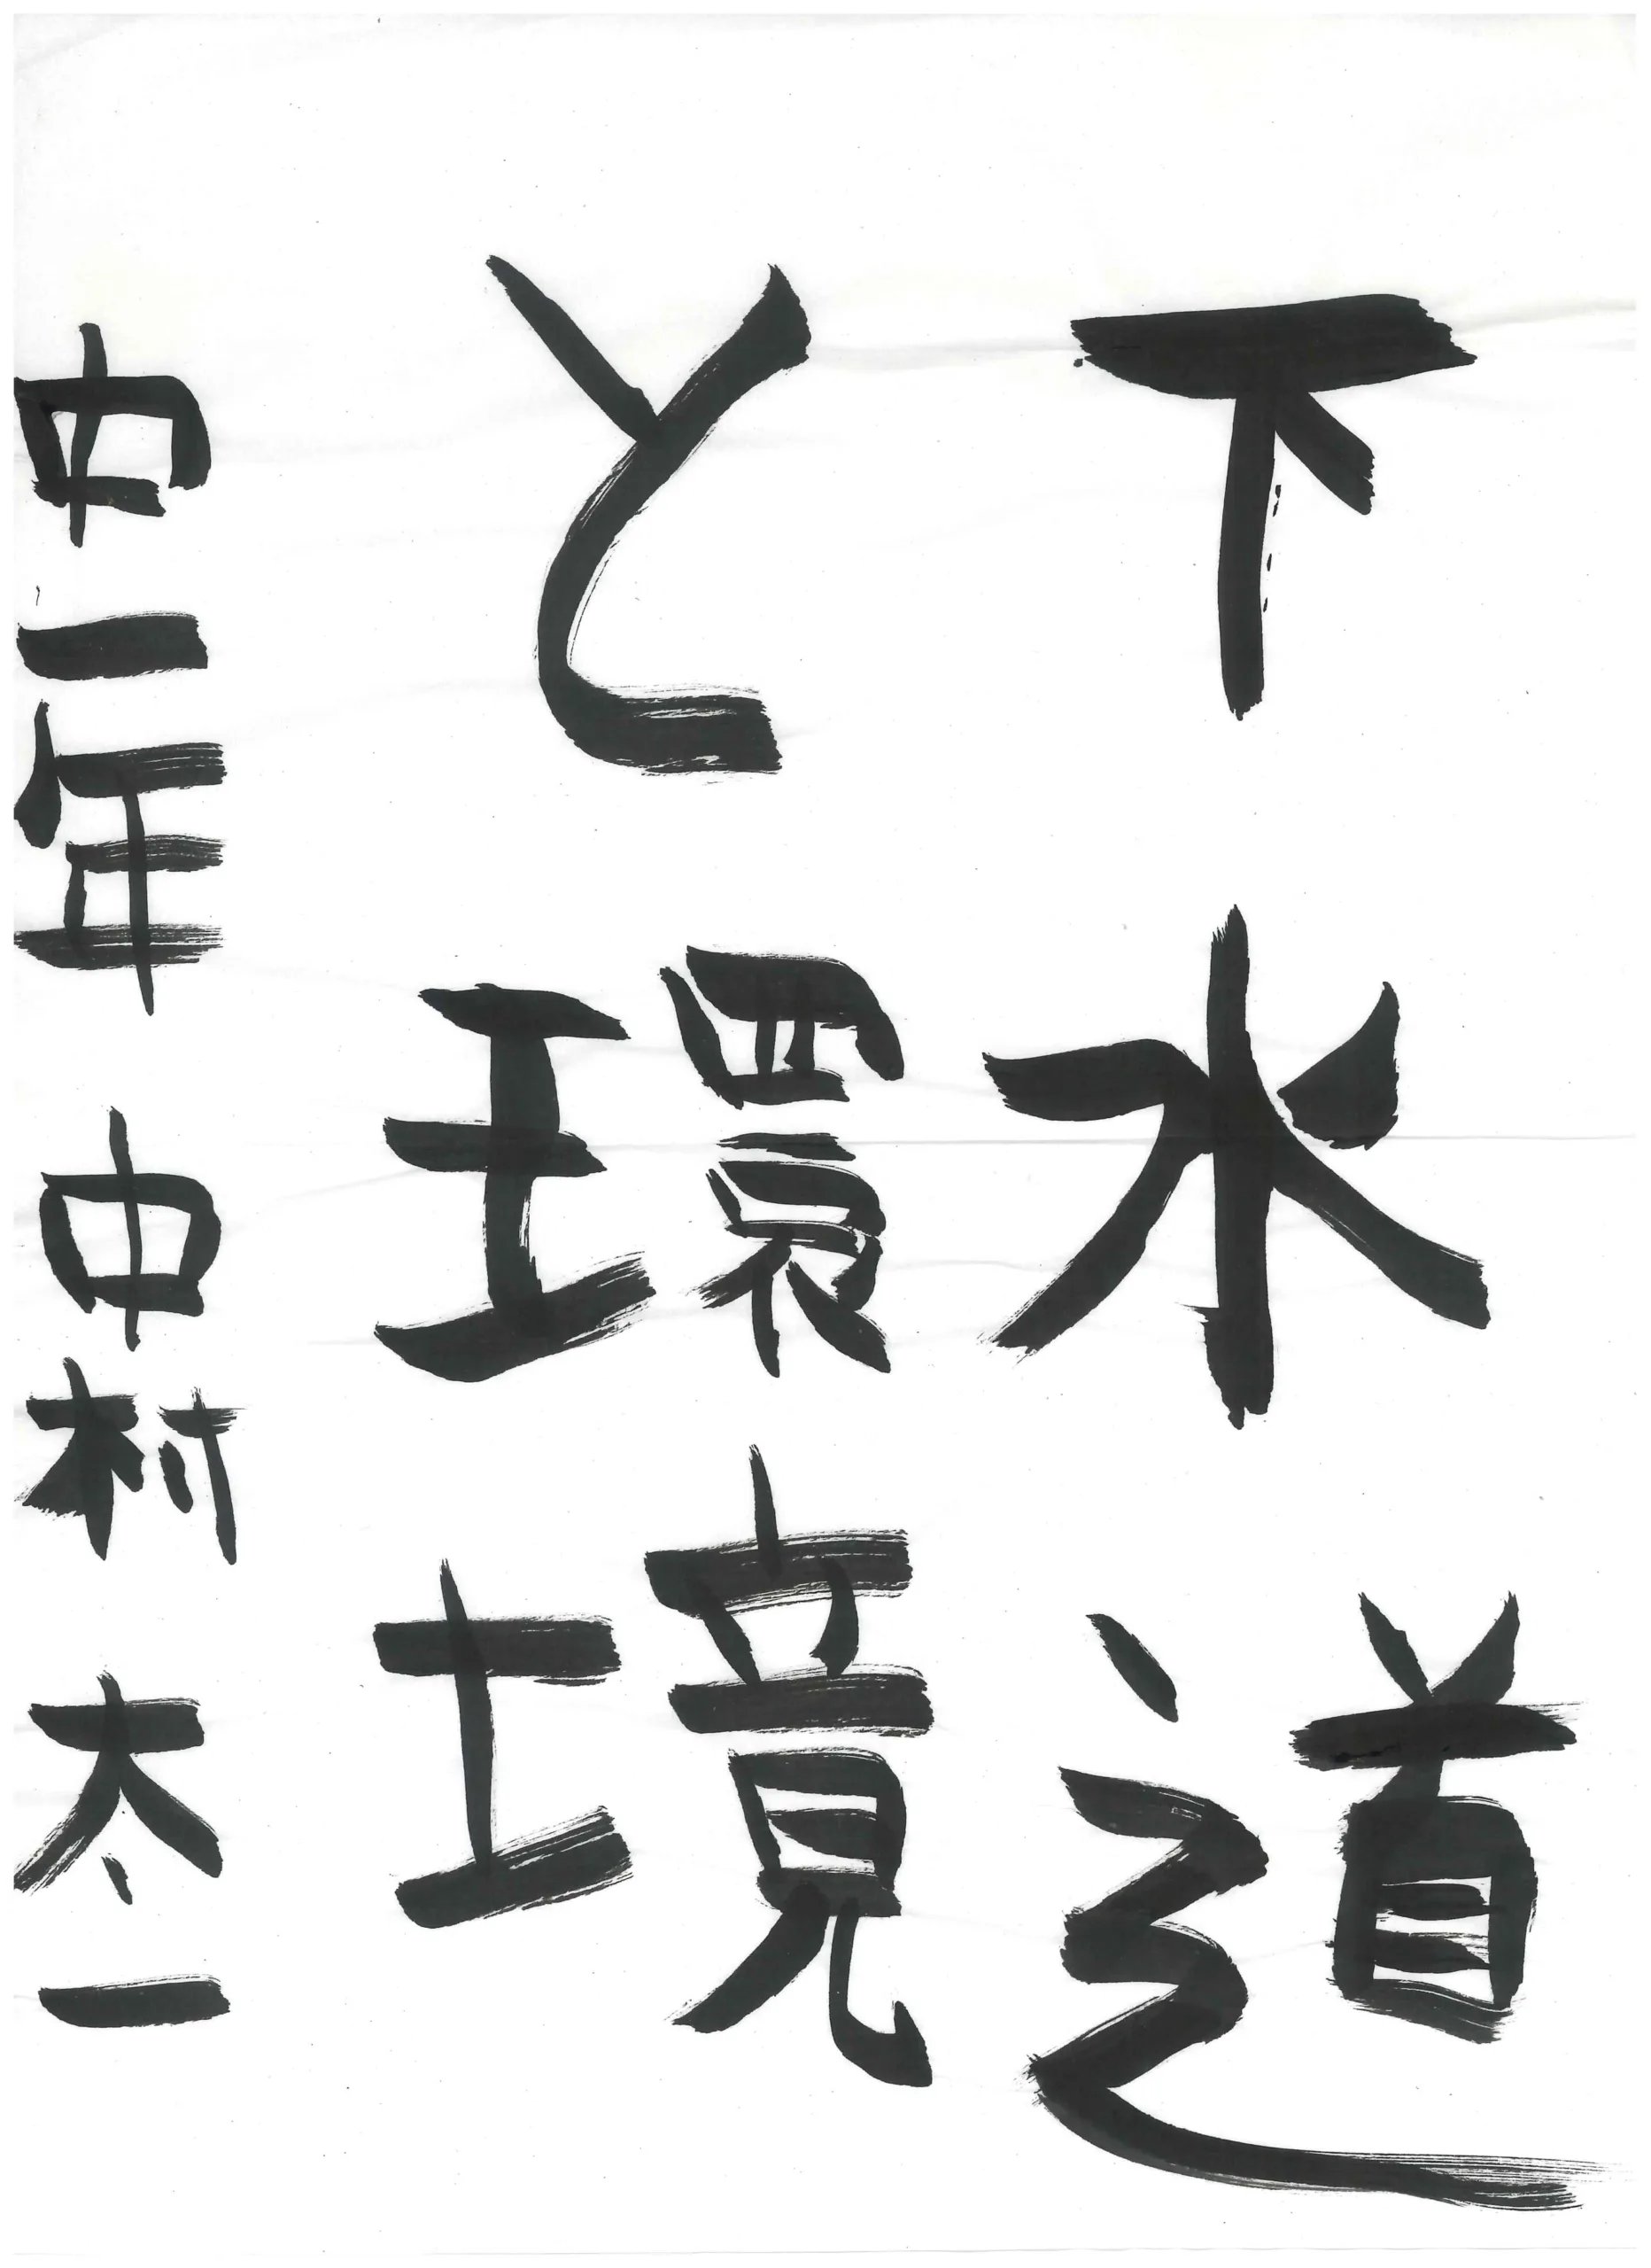 下水道
と環境
中一年 中村太一